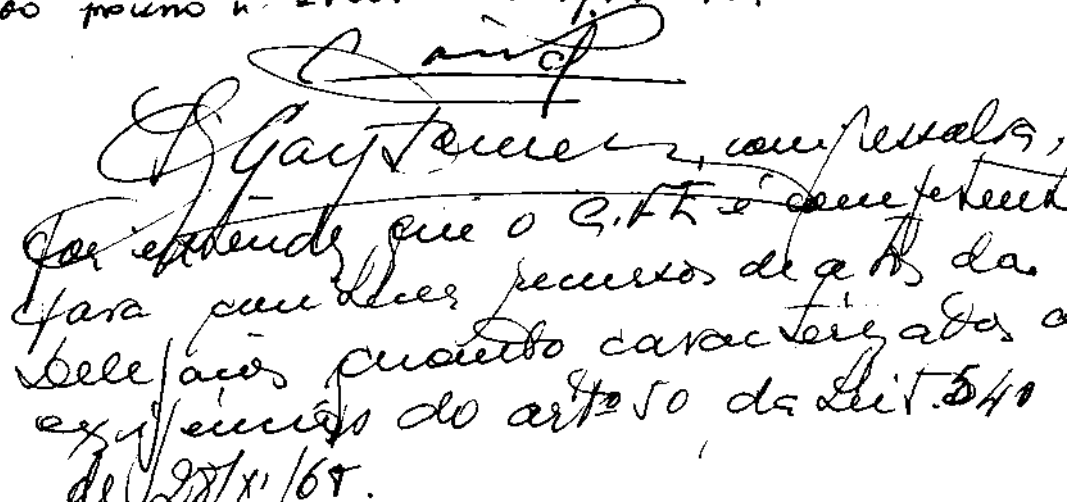 do
com ressalva,
por entender que o C.F.E é competente
para conhecer recursos de atos da
Delegacias quando caracterizados a
exigências do artº 50 da Lei 5.540
de 28/XI/68.